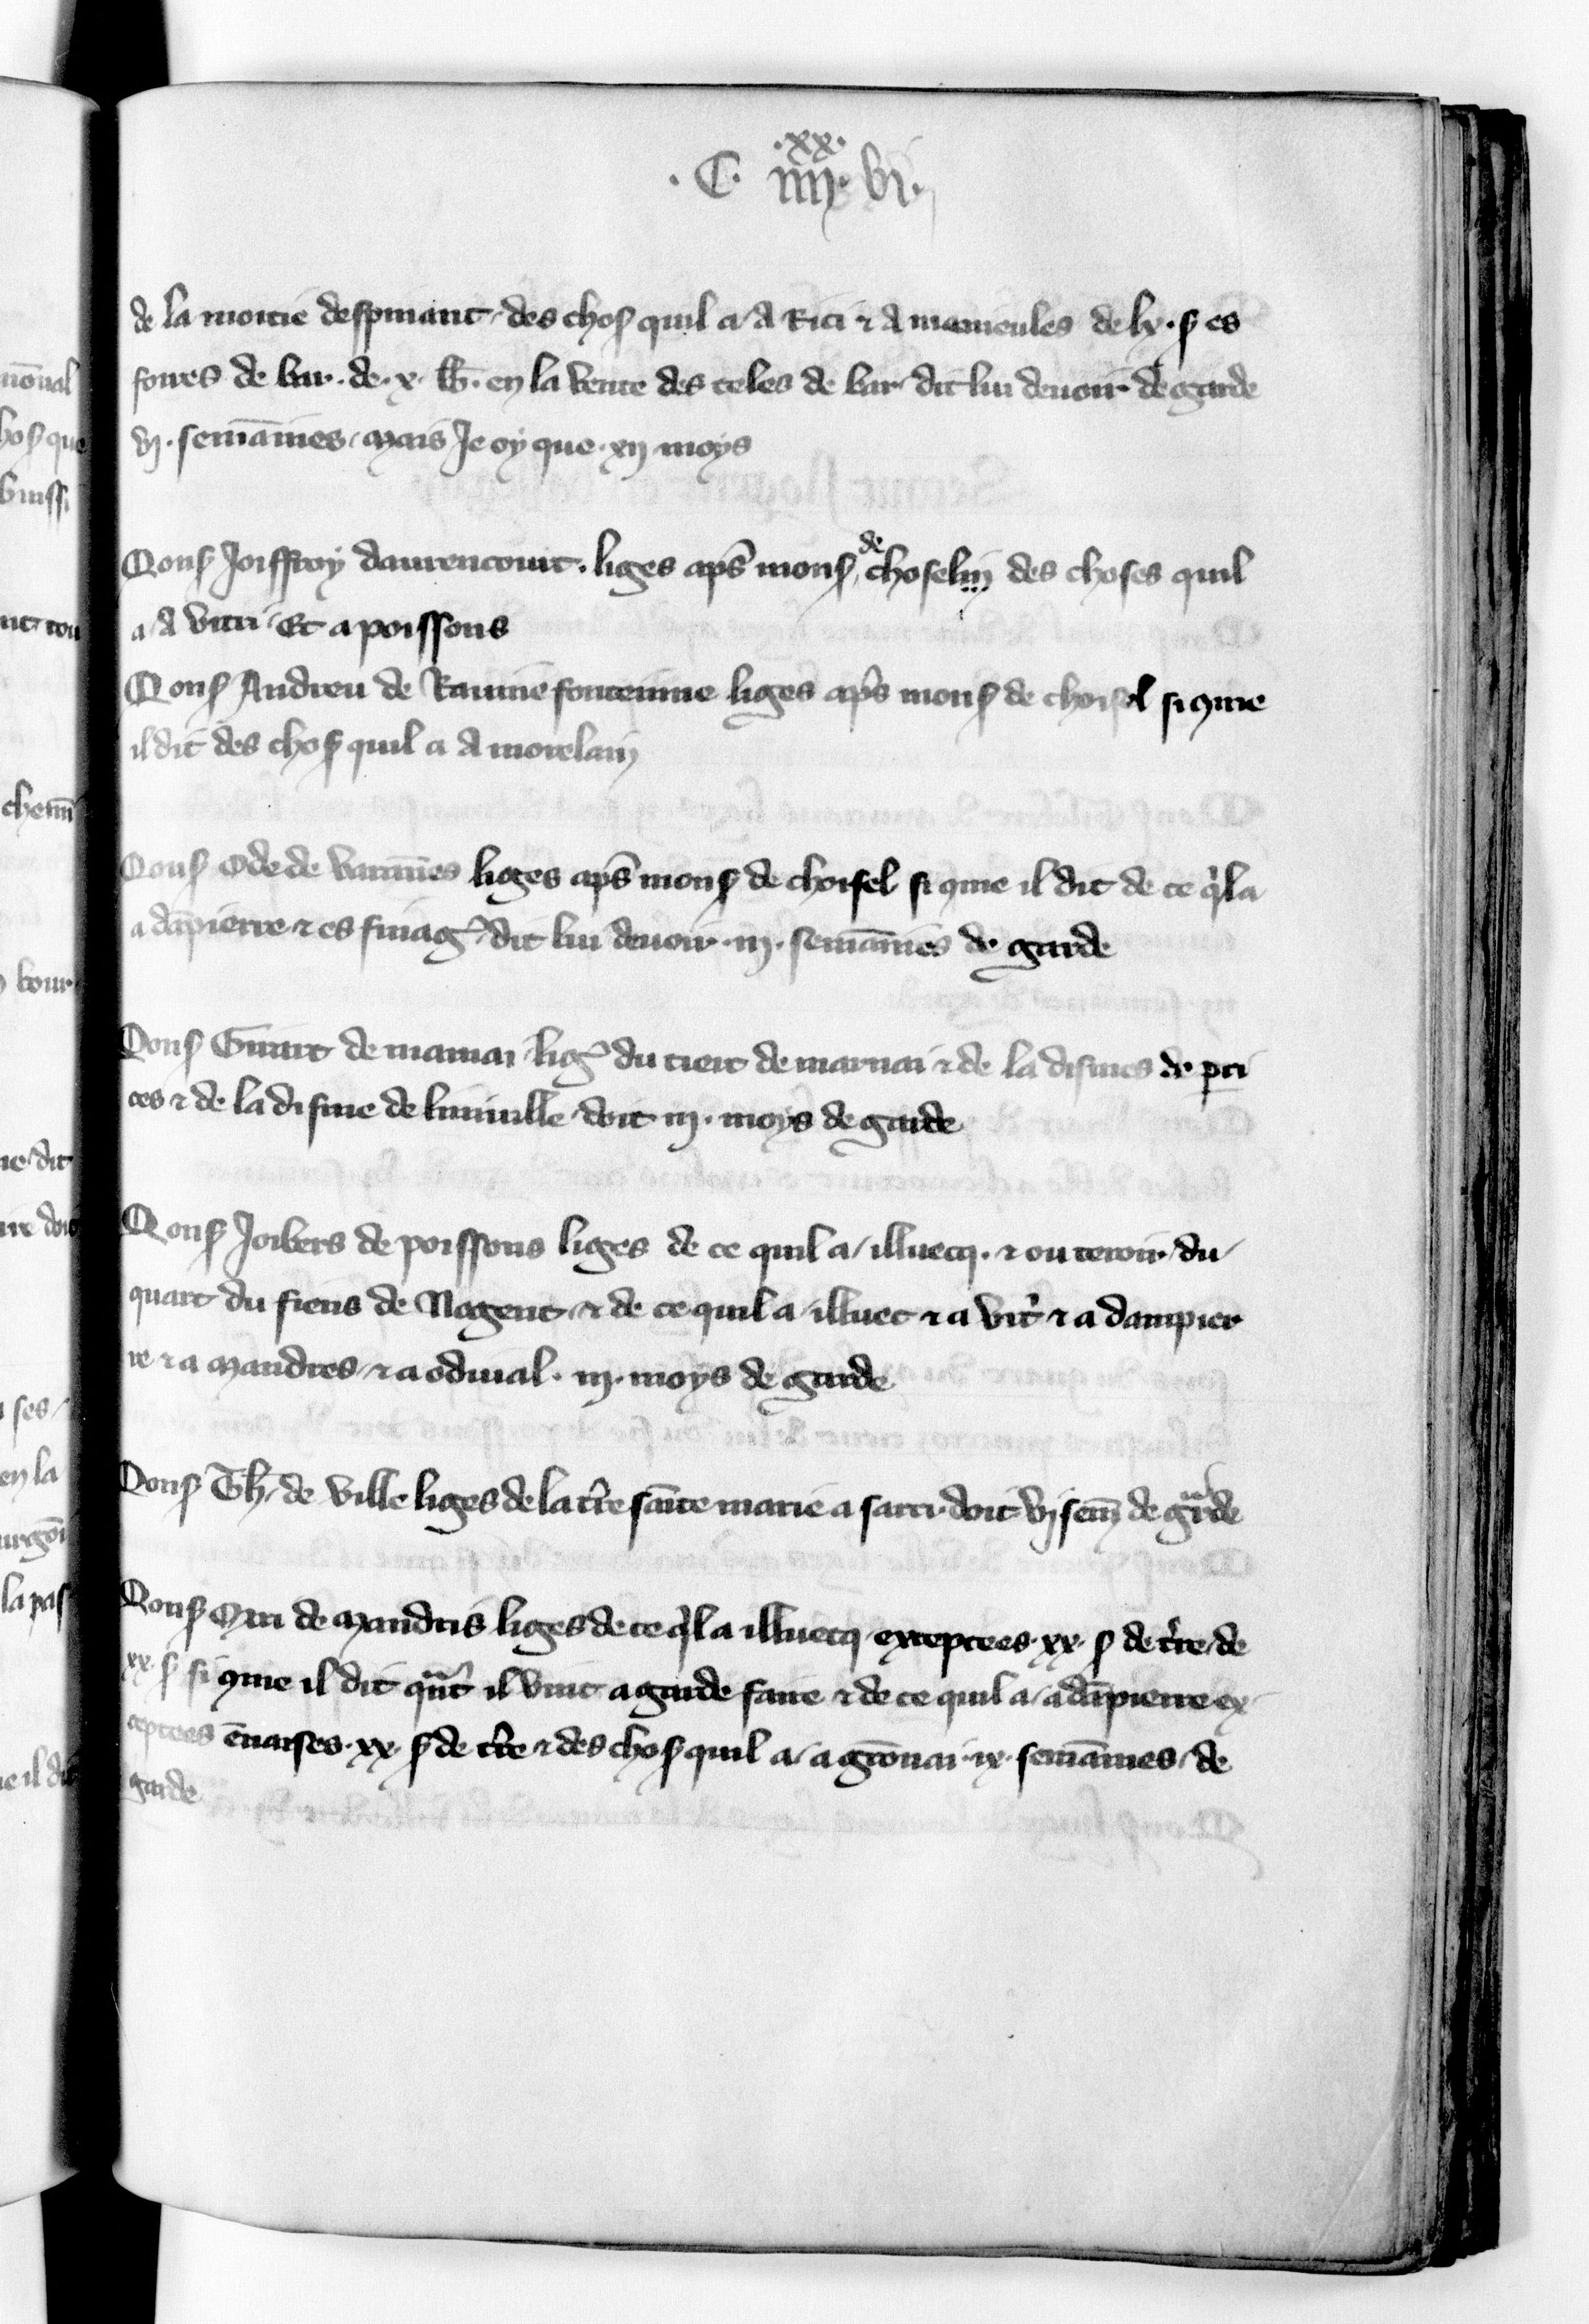 .C. iiij.xx. vi.
de la moitie despinant des chosꝭ quil a a Rici ⁊ a maineules de lx. ꝭ es
foires de bar. de. x. lb. en la vente des teles de bar dit lui deuoir de garde
vj. semāinnes mais Je oy que xij moys
Monsꝭ Joiffroy daurencourt. liges apꝭ monsꝭ de choselin des choses quil
a a vitri Et a poissons
Monsꝭ Andreu de fonteinne liges apꝭs monsꝭ de choisel si 9me
il dit des chosꝭ quil a a morelain
Monsꝭ Ode de varānes liges apꝭ monsꝭ de choisel si 9me il dit de ce qͥl a
a dāpierre ⁊ es finagꝭ dit lui deuoir iij. semāinnes de garde
Monsꝭ Girart de marnai ligꝭ du tiert de marnai ⁊ de la dismes de peri
ces ⁊ de la disme de liniuille doit iij. moys de garde
Monsꝭ Joibers de poissons liges de ce quil a illuecq. ⁊ ou teroir du
quart du fiens de Nogent ⁊ de ce quil a illuec ⁊ a vit̾ ⁊ a dampier
re ⁊ a Mandres ⁊ a odiual. iij. moys de garde
Monsꝭ Th. de ville liges de la t̾re sāinte marie a sarci doit vj sem̄ de garde
Monsꝭ de Mandris liges de ce qͥl a illuecq exceptees xx. ꝭ de t̾re de
xx. ꝭ si 9me il dit qͣnt il vint a garde faire ⁊ de ce quil a a dāpierre ex
ceptees ēnarses xx. ꝭ de t̾re ⁊ des chosꝭ quil a a gronai ix. semāinnes de
garde